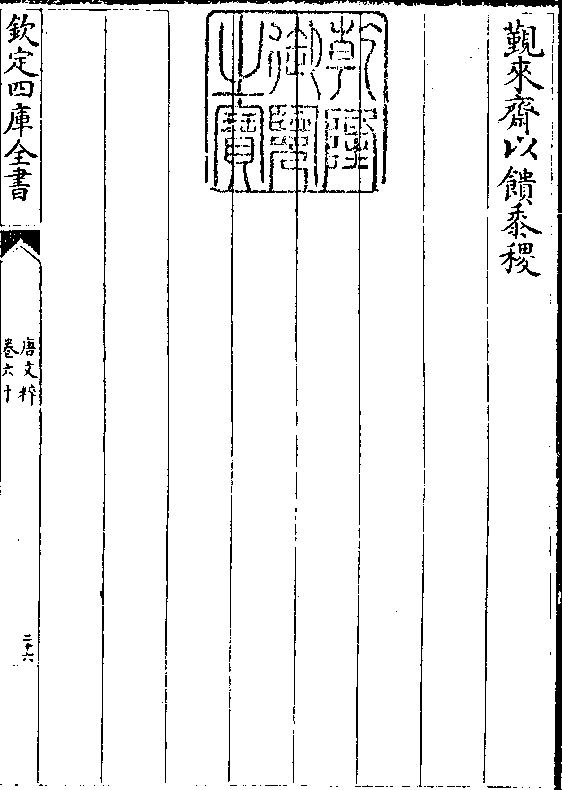 覲來齋以饋黍稷
乾隆御覽之寶
欽定四庫全書
唐文粹
卷六十
二十六